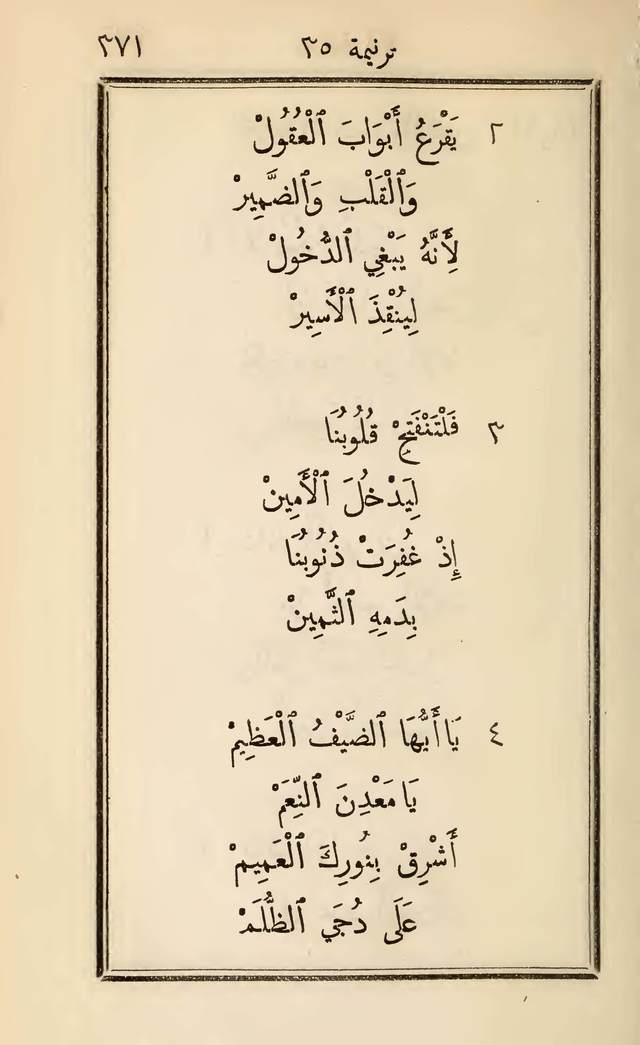 ترنيمة ٣٥ ٣٧١
٢ يَقْرَعُ أَبْوَابَ ٱلْعُقُولْ
وَٱلْقَلْبِ وَٱلضَّمِيرْ
لِأَنَّهُ يَبْغِي ٱلدُّخُولْ
لِيُنْقِذَ ٱلْأَسِيرْ
٣ فَلْتَنْفَتِحْ قُلُوبُنَا
لِيَدْخُلَ ٱلْأَمِينْ
إِذْ غُفِرَتْ ذُنُوبُنَا
بِدَمِهِ ٱلثَّمِينْ
٤ يَا أَيُّهَا ٱلضَّيْفُ ٱلْعَظِيمْ
يَا مَعْدِنَ ٱلنِّعَمْ
أَشْرِقْ بِنُورِكَ ٱلْعَمِيمْ
عَلَى دُجَي ٱلظُّلَمْ